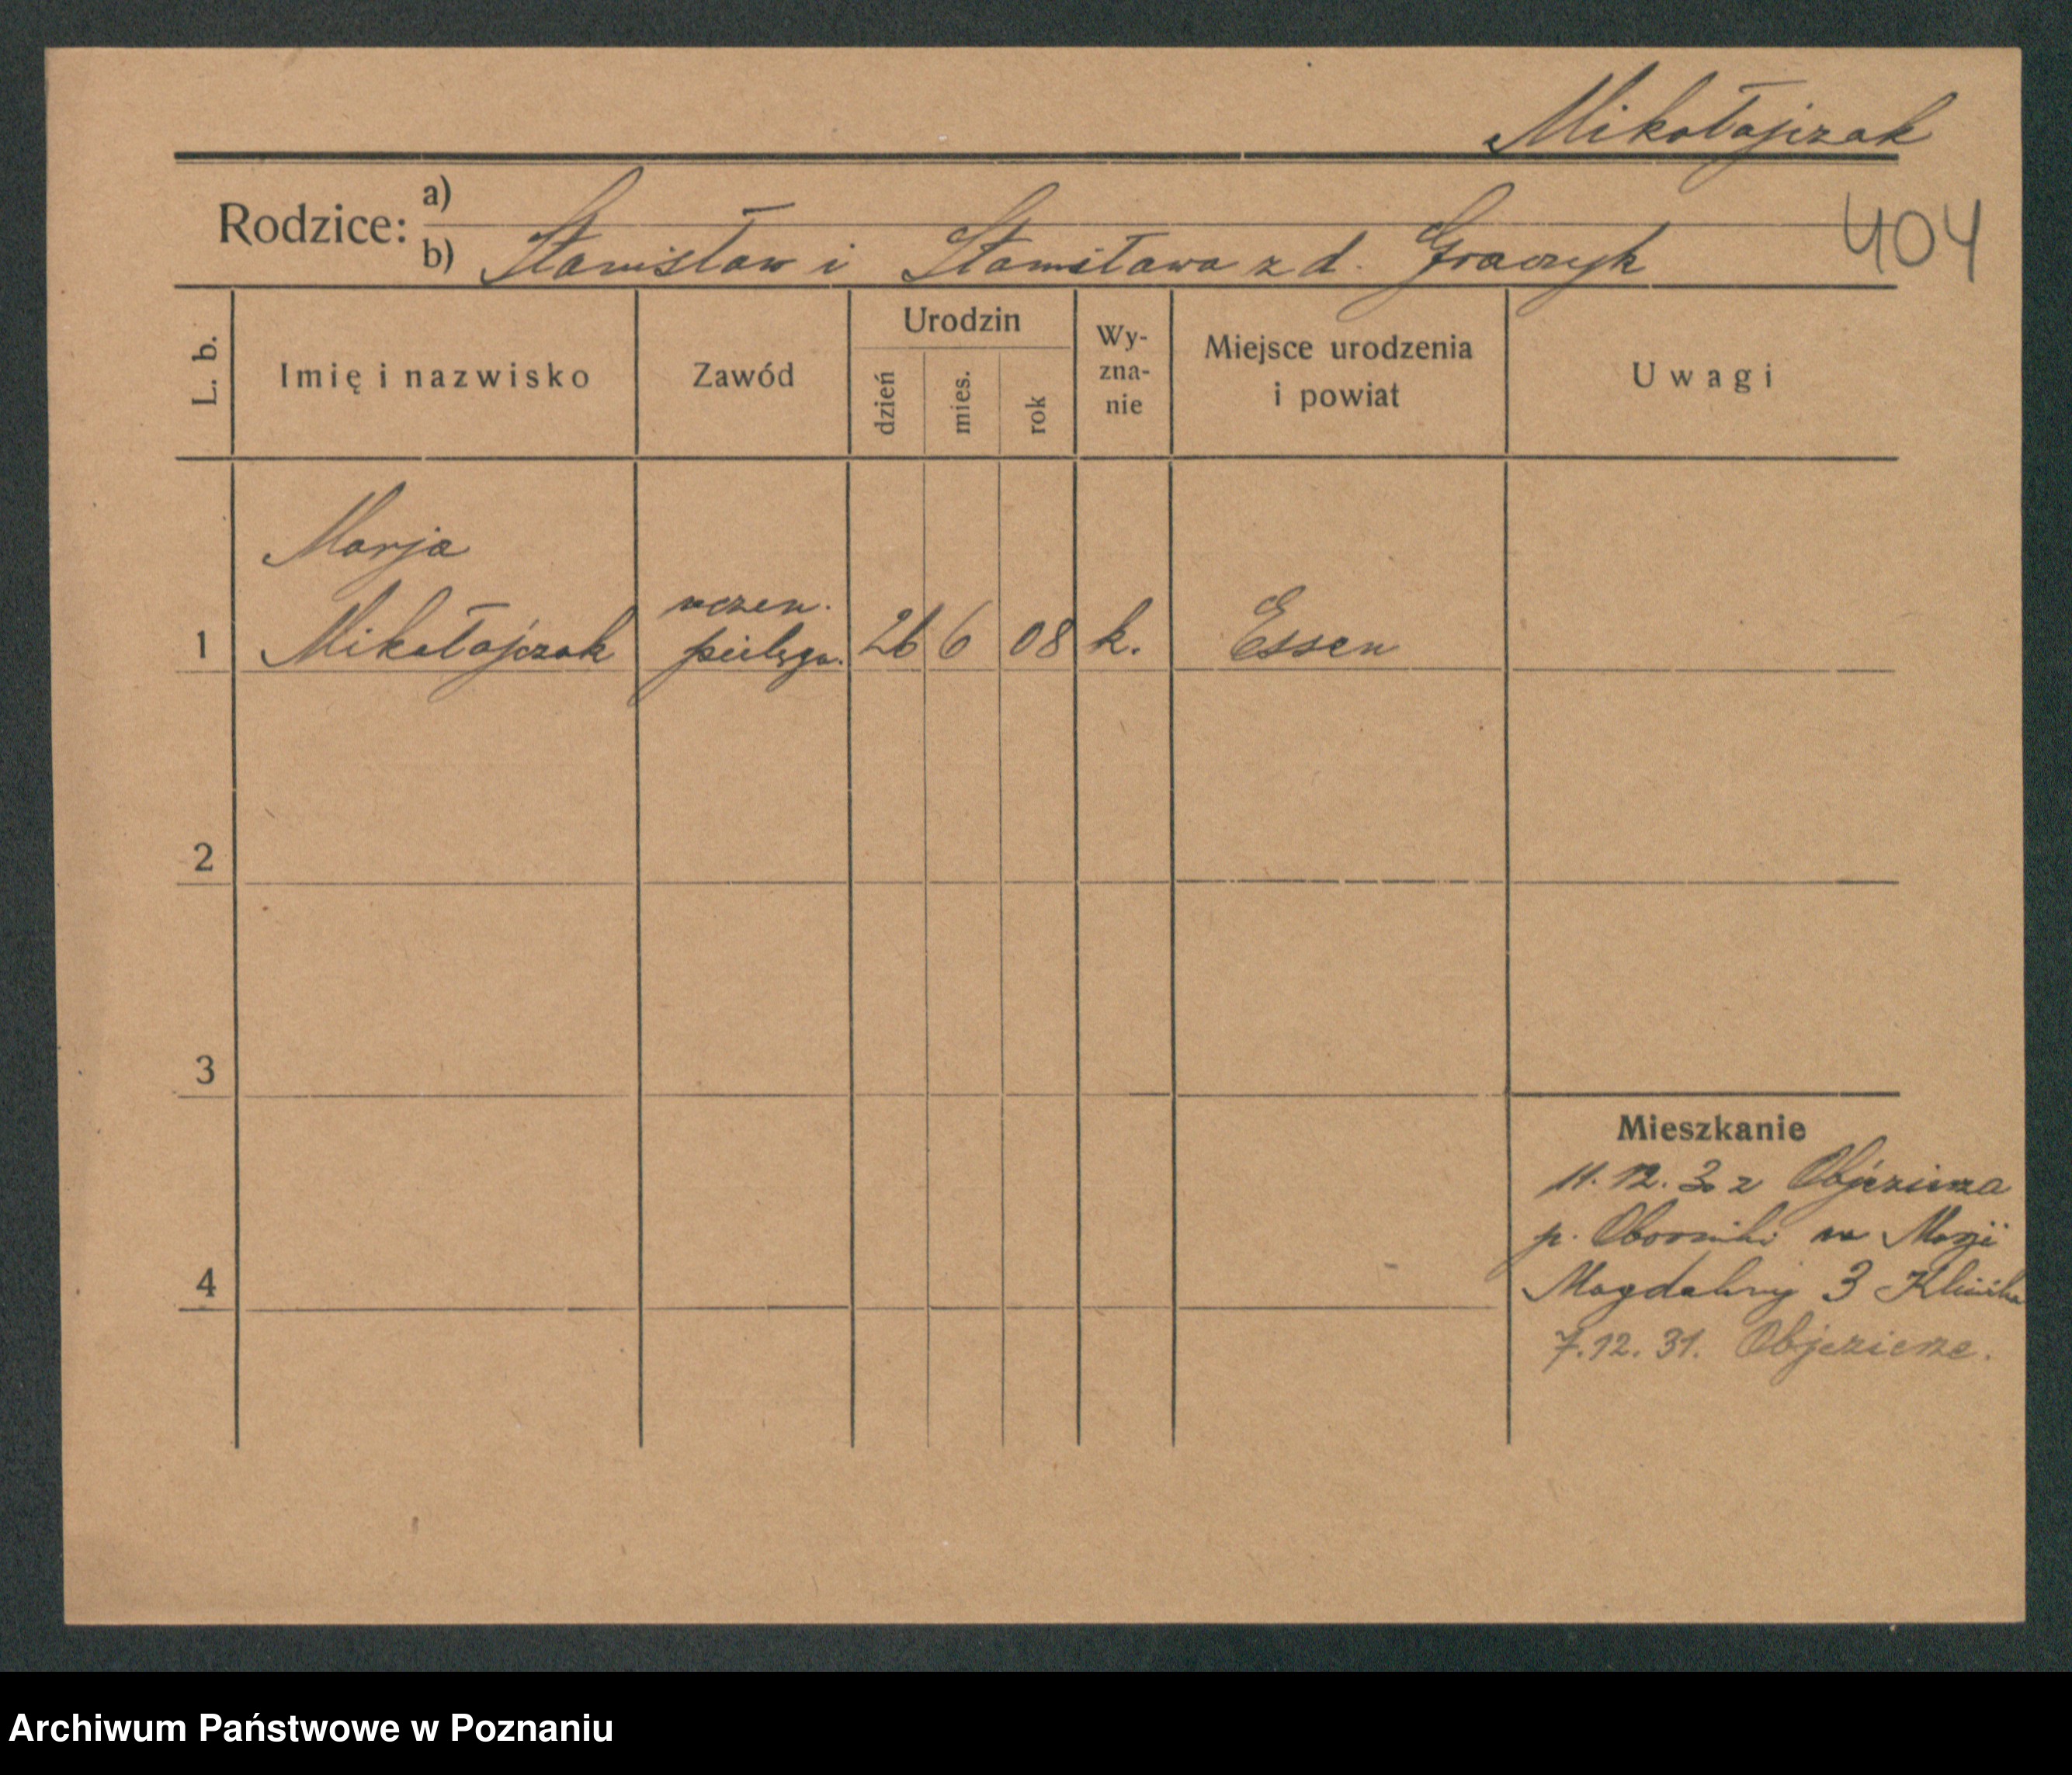 Mikołajczak
Rodzice: a)
b) Stanisław i Stanisława z d. Graczyk
404
L. b.
Imię i nazwisko
Zawód
Urodzin
dzień
mies.
rok
Wy-
zna-
nie
Miejsce urodzenia
i powiat
Uwagi
Marja
1 Mikołajczak uczen. pielęgn. 26 6 08 k. Essen
2
3
4
Mieszkanie
11. 12. 30 z Objezierza
p. Oborniki Marji
Magdaleny 3 Klinika
7. 12. 31. Objezierze.
Archiwum Państwowe w Poznaniu